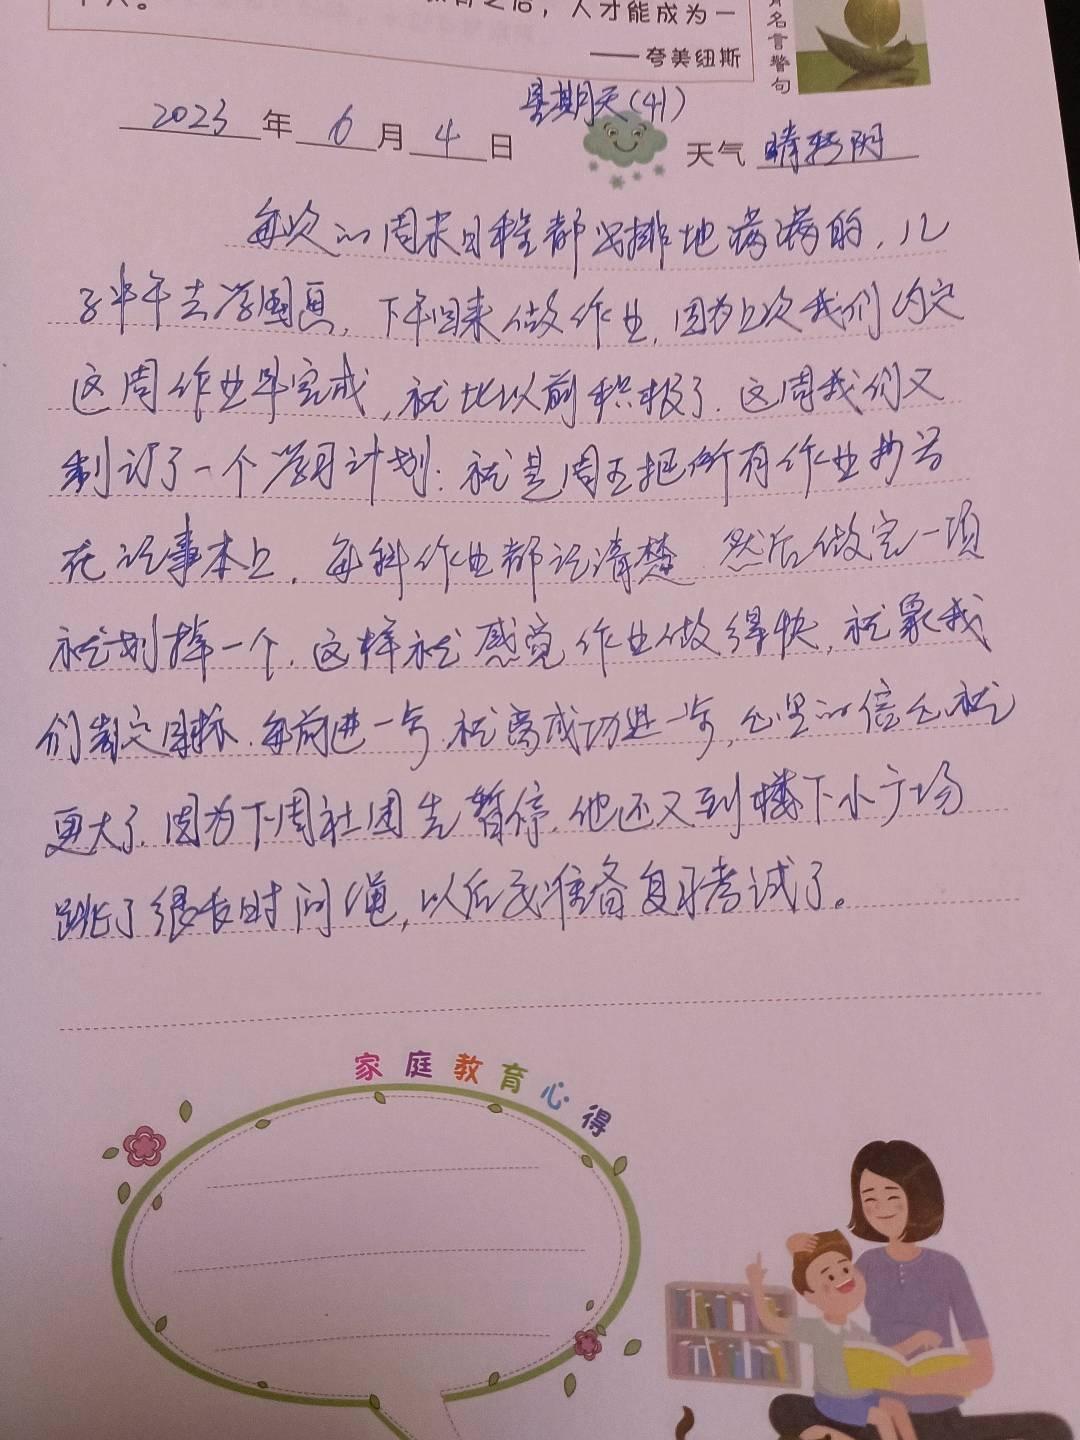 之后，人才能成为一
个人。
——夸美纽斯
名言警句
星期天(41)
2023年6月4日 天气 晴转阴
每次的周末日程都安排地满满的，儿
子半午去学国画，下午回来做作业，因为上次我们约定
这周作业早完成，就比以前积极了．这周我们又
制订了一个学习计划：就是周五把所有作业抄写
在记事本上，每科作业都记清楚．然后做完一项
就划掉一个．这样就感觉作业做得快，就象我
们制定目标．每前进一步．就离成功进一步，心里的信心就
更大了．因为下周社团先暂停．他还又到楼下小广场
跳了很长时间绳，以后要准备复习考试了。
家庭教育心得